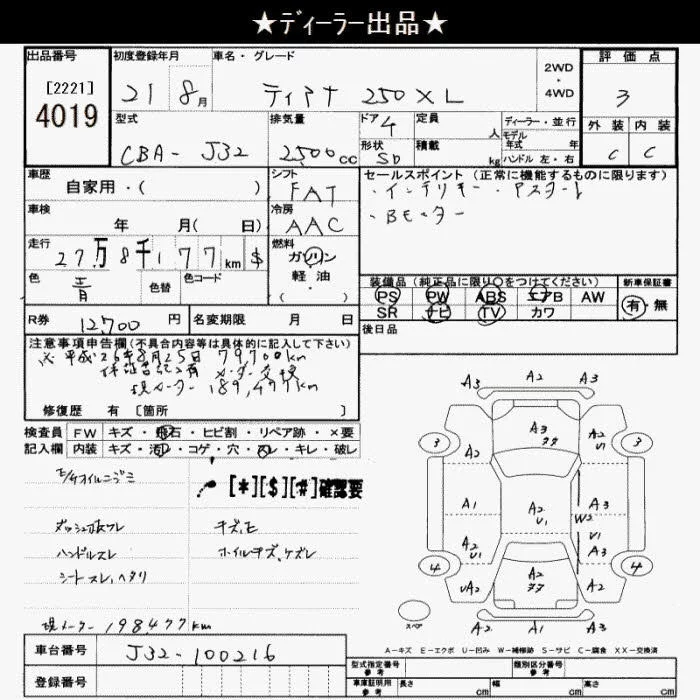 ★ディーラー出品★
出品番号
[2221]
4019
初度登録年月
21 8月
車名・グレード
ティアナ 250 XL
2WD
・
4WD
評価点
3
外装 内装
C C
型式
CBA- J32
排気量
2500cc
ドア 4
形状 SD
定員 人
積載 kg
ディーラー・並行
モデル年式 年
ハンドル 左・右
車歴
自家用・( )
シフト
FAT
車検
年 月( 日)
冷房
AAC
走行
27万8千177km $
燃料
ガソリン
軽・油
( )
色
青
色替
色コード
セールスポイント (正常に機能するものに限ります)
・インテリキー・アスタート
・Bモーター
装備品 (純正品に限り〇をつけてください)
PS PW ABS エアB AW
SR ナビ TV カワ
新車保証書
有・無
R券 12,700 円
名変期限 月 日
後日品
注意事項申告欄(不具合内容等は具体的に記入して下さい)
※平成26年8月25日 79,700km
保証書記入有 メーター交換
現メーター 189,477km
修復歴 有 [箇所 ]
検査員
記入欄
FW キズ・飛石・ヒビ割・リペア跡・×要
内装 キズ・汚レ・コゲ・穴・スレ・キレ・破レ
[*][$][#]確認要
E/gオイルニジミ
ダッシュ板ワレ
ハンドルスレ
シートスレ、ヘタリ
ホイルキズ、ケズレ
現メーター 198477km
A3 A2 A3
A3
3 3
A2 A2
U1
A1 A2 A3
U1 W2
A2 U1
U1 A3
4 4
UA2 A2 A2
スペア
A2 A1 A3
A-キズ E-エクボ U-凹み W-補修跡 S-サビ C-腐食 XX-交換済
車台番号
J32-100216
登録番号
型式指定番号
参考
類別区分番号
参考
車庫証明用
参考
長さ cm
幅 cm
高さ cm